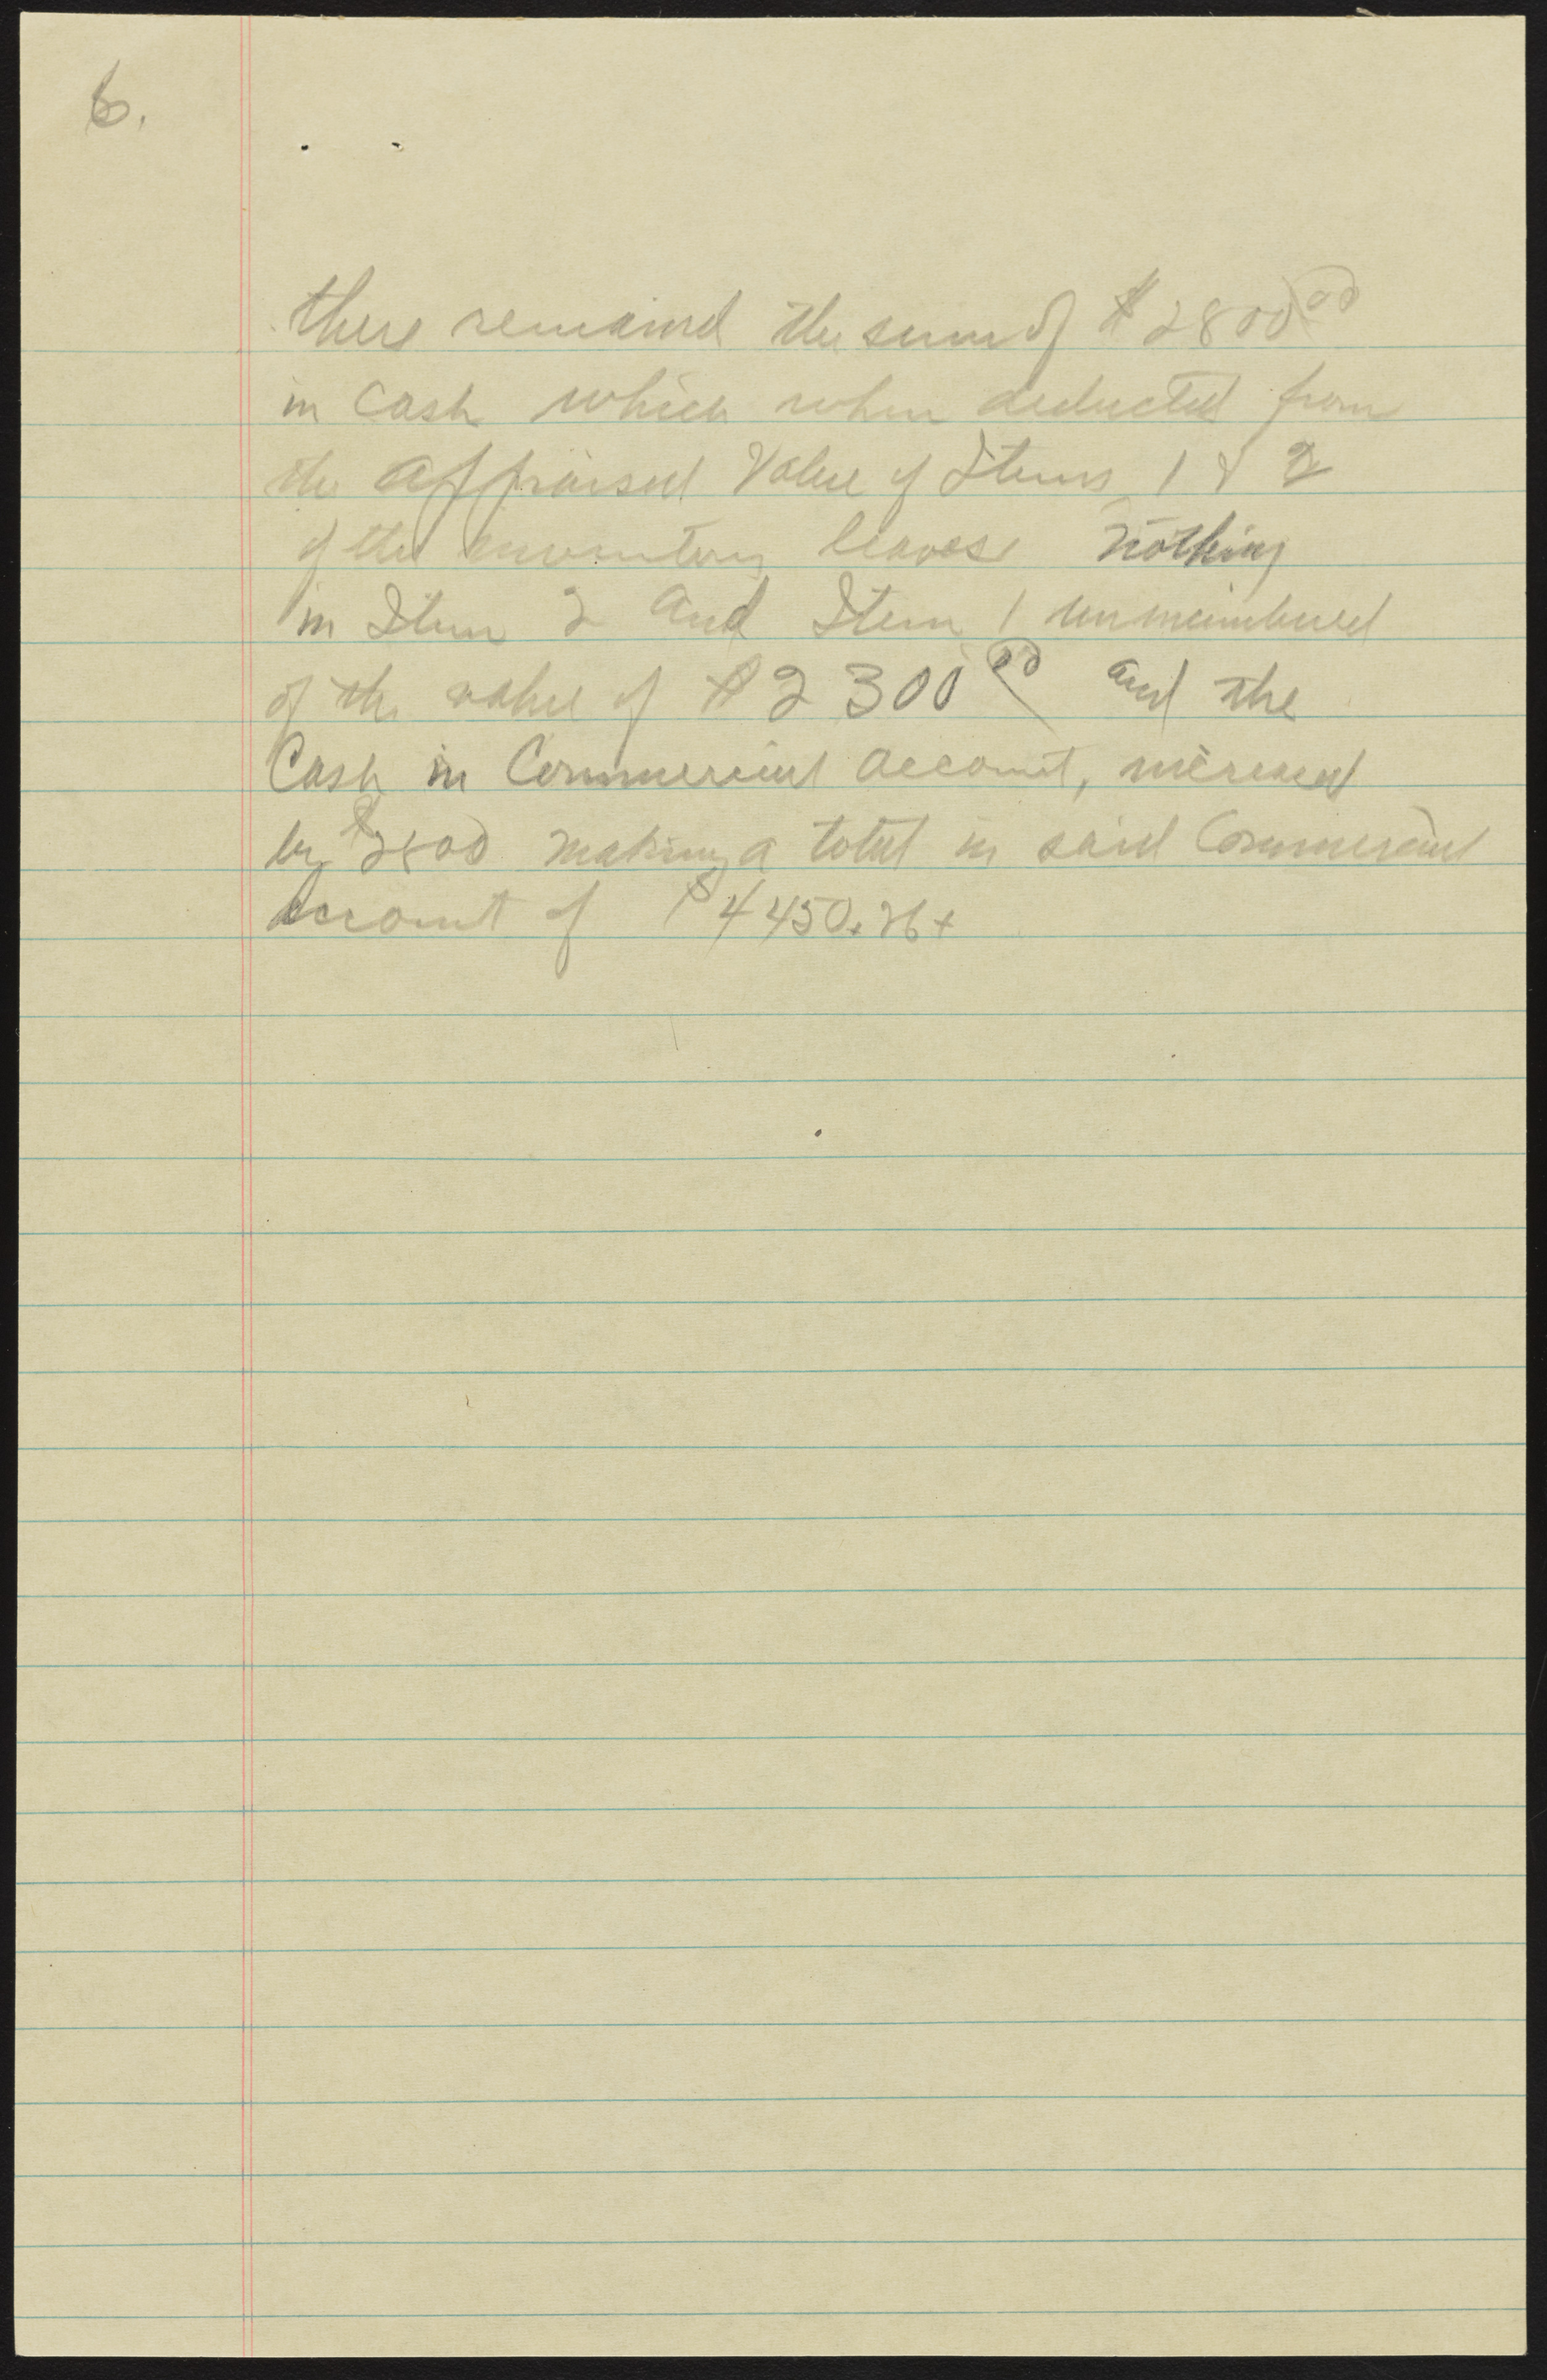 6.
there remained the sum of $2800.00
in cash which when deducted from
the appraised Value of Items 1 & 2
of the inventory leaves nothing
in Item 2 and Item 1
of the value of $2300.00 and the
Cash in Commercial account, increased
by $2800 making a total in said Commercial
account of $4450.26+